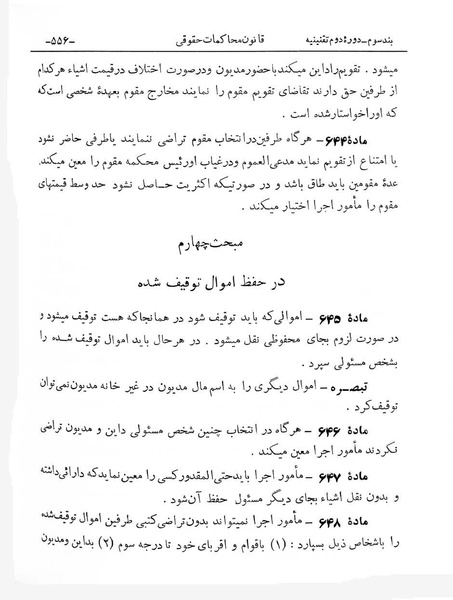 بند سوم ـ دورهٔ دوم تقنینیه قانون محاکمات حقوقی ـ۵۵۶ـ
میشود . تقویم را داین میکند با حضور مدیون و در صورت اختلاف در قیمت اشیاء هر کدام
از طرفین حق دارند تقاضای تقویم مقوم را نمایند مخارج مقوم بعهدهٔ شخصی است که
که او را خواستار شده است .
مادهٔ ۶۴۴ ـ هر گاه طرفین در انتخاب مقوم تراضی ننمایند یا طرفی حاضر نشود
یا امتناع از تقویم نماید مدعی العموم و در غیاب او رئیس محکمه مقوم را معین میکند.
عدهٔ مقومین باید طاق باشد و در صورتیکه اکثریت حاصل نشود حد وسط قیمتهای
مقوم را مأمور اجرا اختیار میکند .
مبحث چهارم
در حفظ اموال توقیف شده
مادهٔ ۶۴۵ ـ اموالی که باید توقیف شود در همانجا که هست توقیف میشود و
در صورت لزوم بجای محفوظی نقل میشود . در هر حال باید اموال توقیف شده را
بشخص مسئولی سپرد .
تبصره ـ اموال دیگری را به اسم مال مدیون در غیر خانه مدیون نمی توان
توقیف کرد .
مادهٔ ۶۴۶ ـ هر گاه در انتخاب چنین شخص مسئولی داین و مدیون تراضی
نکردند مأمور اجرا معین میکند .
مادهٔ ۶۴۷ ـ مأمور اجرا باید حتی المقدور کسی را معین نماید که دارائی داشته
و بدون نقل اشیاء بجای دیگر مسئول حفظ آن شود .
مادهٔ ۶۴۸ ـ مأمور اجرا نمیتواند بدون تراضی کتبی طرفین اموال توقیف شده
را باشخاص ذیل بسپارد : (۱) باقوام و اقربای خود تا درجه سوم (۲) بداین و مدیون